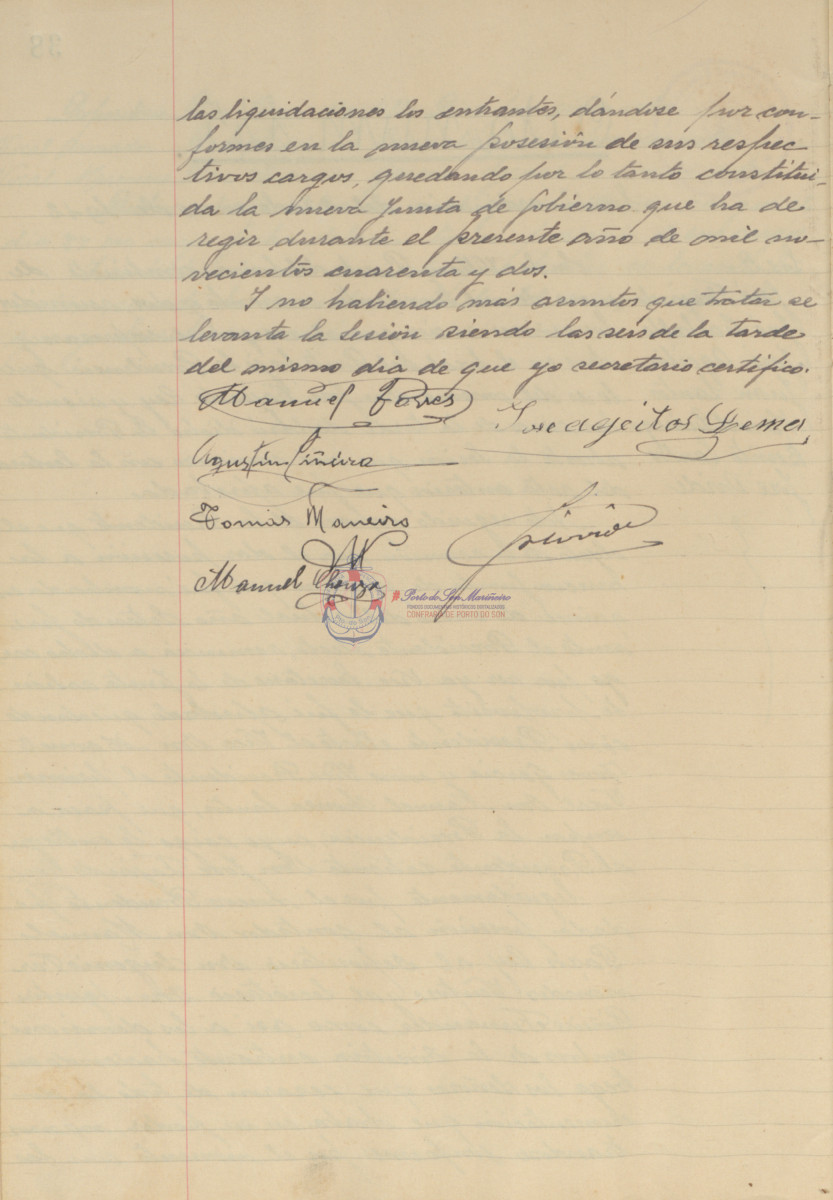 las liquidaciones los entrantes, dándose por con-
formes en la nueva posesión de sus respec
tivos cargos, quedando por lo tanto constitui-
da la nueva Junta de Gobierno que ha de
regir durante el presente año de mil no-
vecientos cuarenta y dos.
Y no habiendo más asuntos que tratar se
levanta la sesión siendo las seis de la tarde
del mismo dia de que yo secretario certifico.
Manuel
Jose Ageitos Lema
Agustin Piñeiro
Tomas Maneiro
Manuel
Porto do Son Mariñeiro
FONDOS DOCUMENTAIS HISTÓRICOS DIGITALIZADOS
CONFRARÍA DE PORTO DO SON